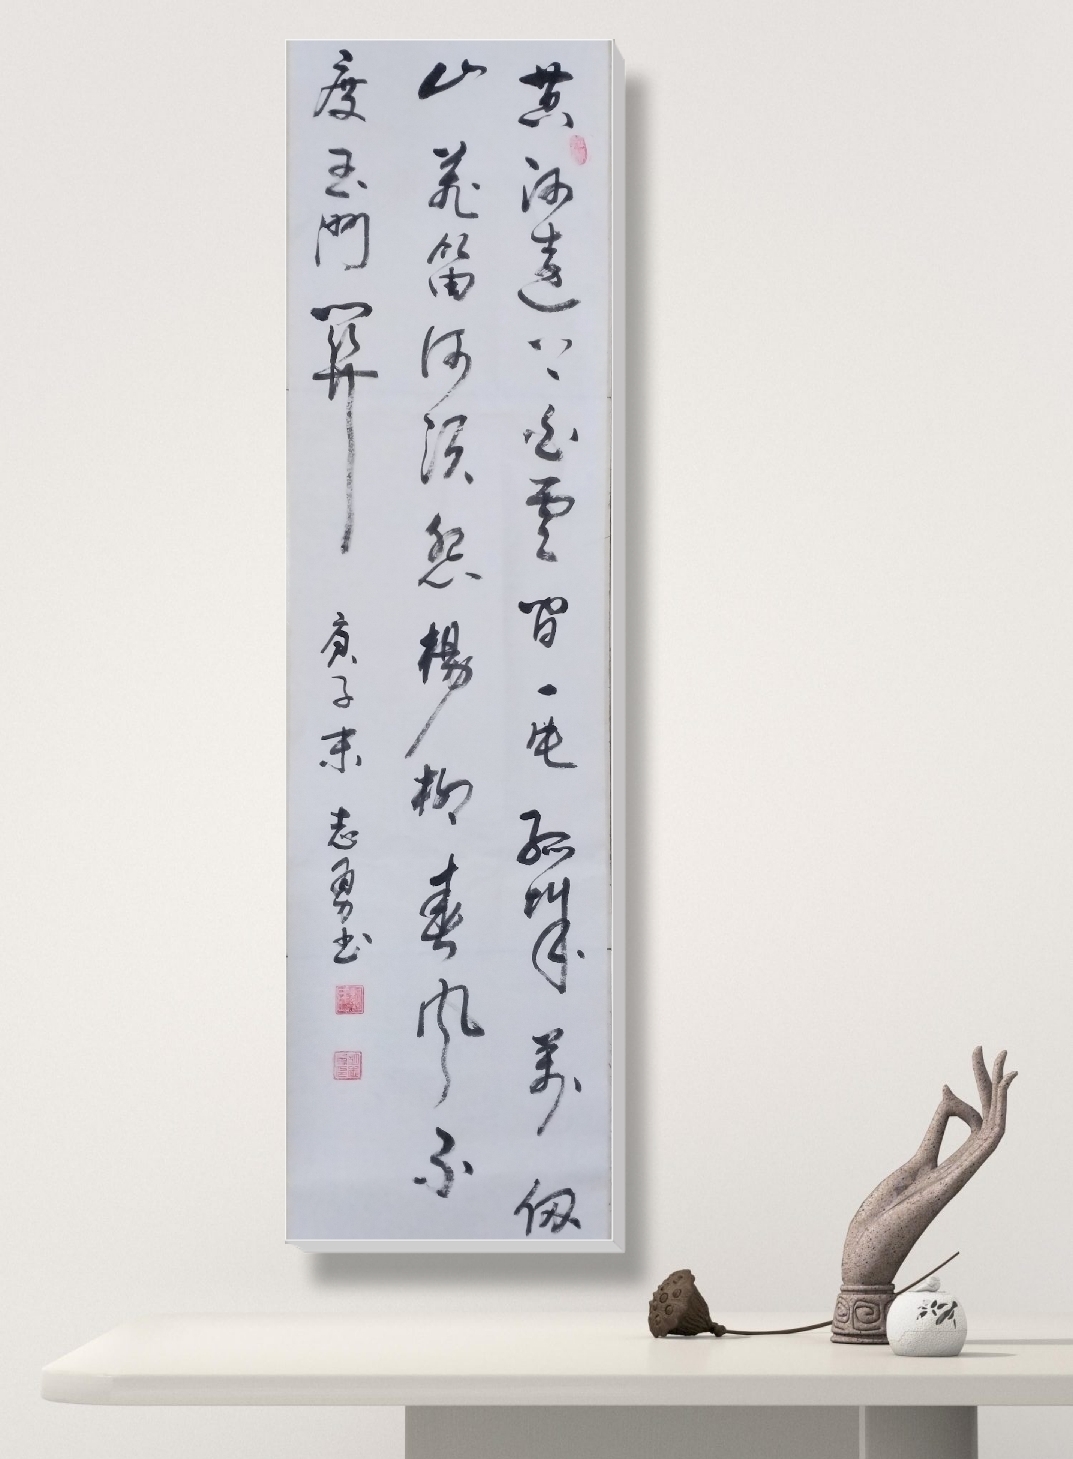 黄河远上白雲间一片孤城萬仞
山羌笛何须怨楊柳春风不
度玉門関
庚子末 志勇书